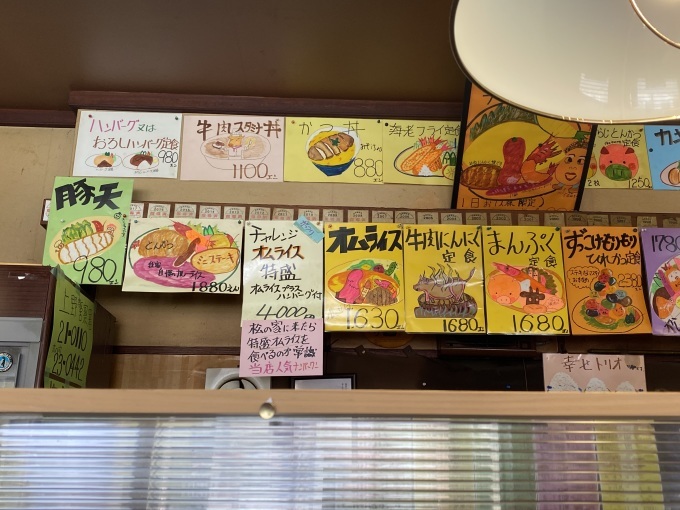 ハンバーグ又は
おろしハンバーグ定食
980
牛肉スタミナ丼
1100
かつ丼
880
海老フライ定食
とんかつ
定食
1250
豚天
980
とんかつ
ミニステーキ
1880
チャレンジ
オムライス
特盛
オムライスプラス
ハンバーグ付
4000円
松の家に来たら
特盛オムライスを
食べるのが常識
当店人気ナンバーワン
オムライス
1630
牛肉にんにく
定食
1680
まんぷく
定食
1680
ずっこけもりもり
ひれかつ定食
2380
1780
幸せトリオ
21-0110
23-0442